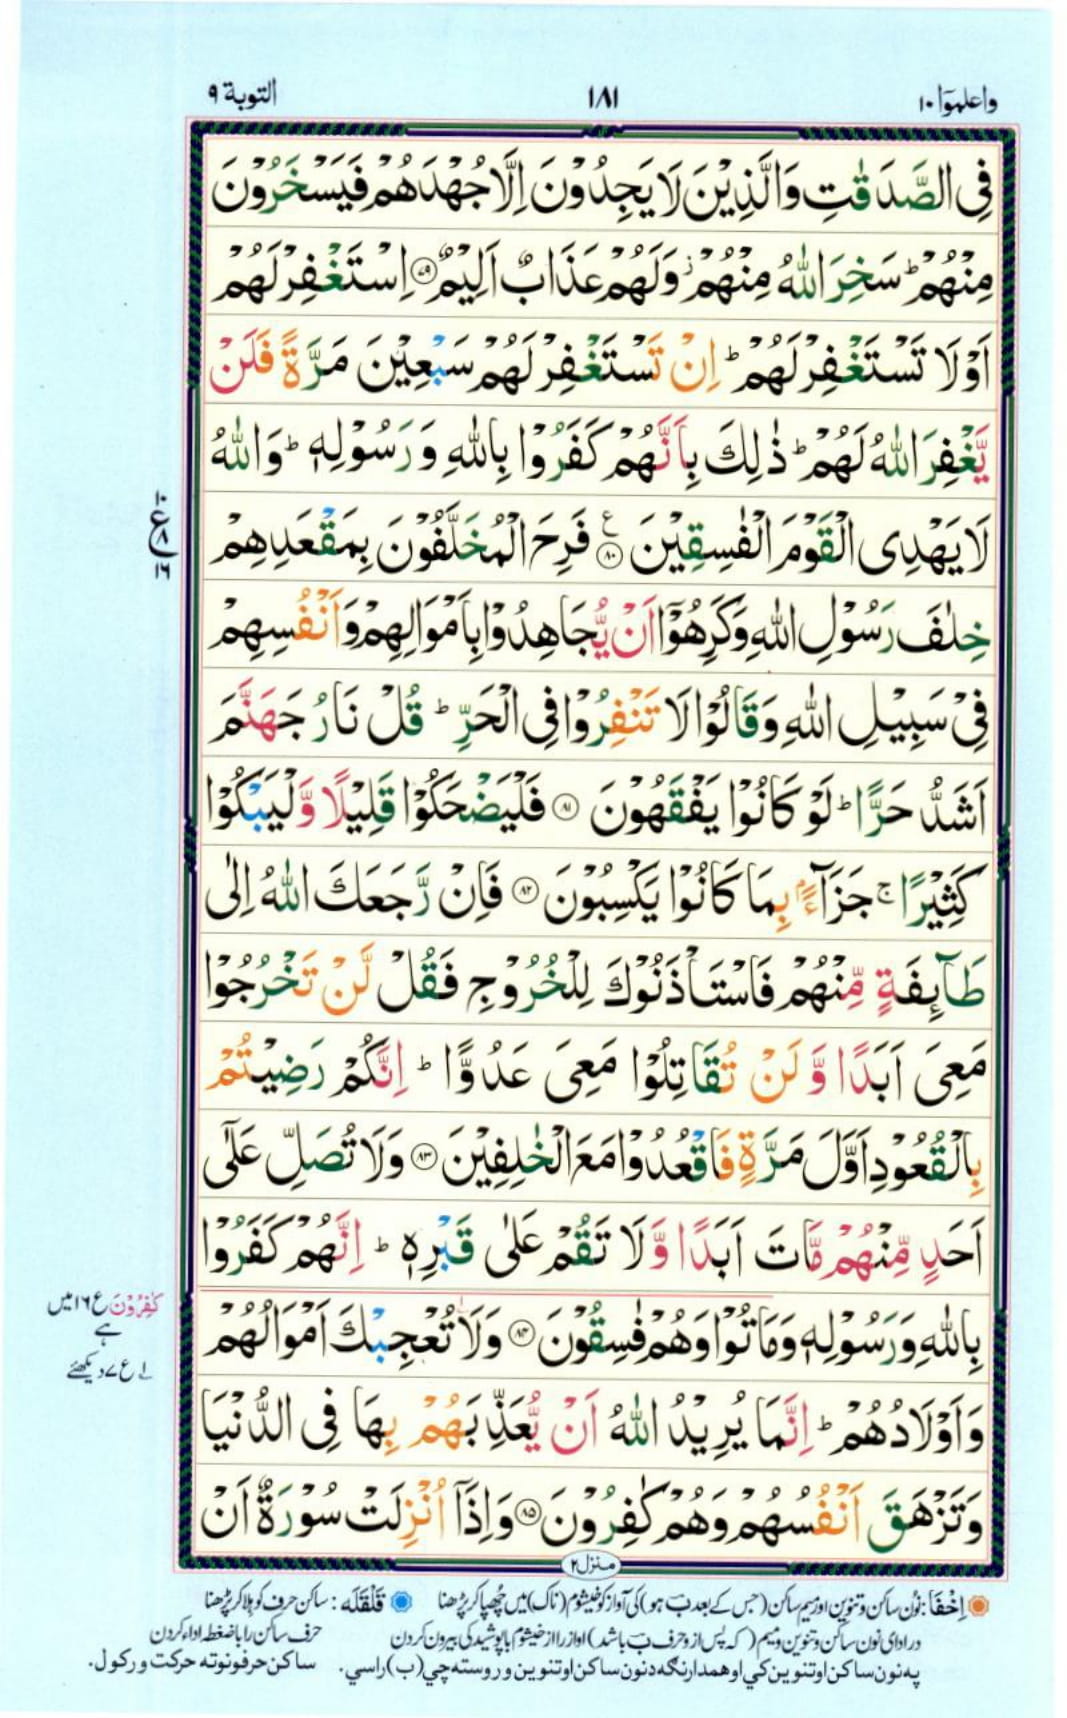 واعلموٓا ١٠
١٨١
التوبة ٩
فِی الصَّدَقٰتِ وَالَّذِیْنَ لَا یَجِدُوْنَ اِلَّا جُهْدَهُمْ فَیَسْخَرُوْنَ
مِنْهُمْ ؕ سَخِرَ اللّٰهُ مِنْهُمْ ؗ وَلَهُمْ عَذَابٌ اَلِیْمٌ ﴿۷۹﴾ اِسْتَغْفِرْ لَهُمْ
اَوْ لَا تَسْتَغْفِرْ لَهُمْ ؕ اِنْ تَسْتَغْفِرْ لَهُمْ سَبْعِیْنَ مَرَّةً فَلَنْ
یَّغْفِرَ اللّٰهُ لَهُمْ ؕ ذٰلِكَ بِاَنَّهُمْ كَفَرُوْا بِاللّٰهِ وَ رَسُوْلِهٖ ؕ وَاللّٰهُ
لَا یَهْدِی الْقَوْمَ الْفٰسِقِیْنَ ﴿۸۰﴾ ع فَرِحَ الْمُخَلَّفُوْنَ بِمَقْعَدِهِمْ
١٠ ع ٨ ١٦
خِلٰفَ رَسُوْلِ اللّٰهِ وَكَرِهُوْۤا اَنْ یُّجَاهِدُوْا بِاَمْوَالِهِمْ وَاَنْفُسِهِمْ
فِیْ سَبِیْلِ اللّٰهِ وَقَالُوْا لَا تَنْفِرُوْا فِی الْحَرِّ ؕ قُلْ نَارُ جَهَنَّمَ
اَشَدُّ حَرًّا ؕ لَوْ كَانُوْا یَفْقَهُوْنَ ﴿۸۱﴾ فَلْیَضْحَكُوْا قَلِیْلًا وَّلْیَبْكُوْا
كَثِیْرًا ۚ جَزَآءًۢ بِمَا كَانُوْا یَكْسِبُوْنَ ﴿۸۲﴾ فَاِنْ رَّجَعَكَ اللّٰهُ اِلٰی
طَآىِٕفَةٍ مِّنْهُمْ فَاسْتَاْذَنُوْكَ لِلْخُرُوْجِ فَقُلْ لَّنْ تَخْرُجُوْا
مَعِیَ اَبَدًا وَّ لَنْ تُقَاتِلُوْا مَعِیَ عَدُوًّا ؕ اِنَّكُمْ رَضِیْتُمْ
بِالْقُعُوْدِ اَوَّلَ مَرَّةٍ فَاقْعُدُوْا مَعَ الْخٰلِفِیْنَ ﴿۸۳﴾ وَلَا تُصَلِّ عَلٰۤی
اَحَدٍ مِّنْهُمْ مَّاتَ اَبَدًا وَّ لَا تَقُمْ عَلٰی قَبْرِهٖ ؕ اِنَّهُمْ كَفَرُوْا
بِاللّٰهِ وَرَسُوْلِهٖ وَمَاتُوْا وَهُمْ فٰسِقُوْنَ ﴿۸۴﴾ وَلَا تُعْجِبْكَ اَمْوَالُهُمْ
كٰفِرُوْنَ ع ١٦ میں
ہے
ل ع ٧ دیکھئے
وَاَوْلَادُهُمْ ؕ اِنَّمَا یُرِیْدُ اللّٰهُ اَنْ یُّعَذِّبَهُمْ بِهَا فِی الدُّنْیَا
وَتَزْهَقَ اَنْفُسُهُمْ وَهُمْ كٰفِرُوْنَ ﴿۸۵﴾ وَاِذَاۤ اُنْزِلَتْ سُوْرَةٌ اَنْ
منزل ٢
اِخْفَا: نُون ساکن و تنوین اور میم ساکن (جس کے بعد ب ہو) کی آواز کو خیشوم (ناک) میں چُھپا کر پڑھنا قَلْقَلَه: ساکن حرف کو ہلا کر پڑھنا
در ادای نون ساکن و تنوین و میم (که پس از و حرف ب باشد) اواز را از خیشوم با پوشیدگی بیرون کردن حرف ساکن را با ضغطه ادا کردن
په نون ساکن او تنوین کي او همدارنګه د نون ساکن او تنوین و روسته چي (ب) راسي. ساکن حرفونو ته حرکت ورکول.